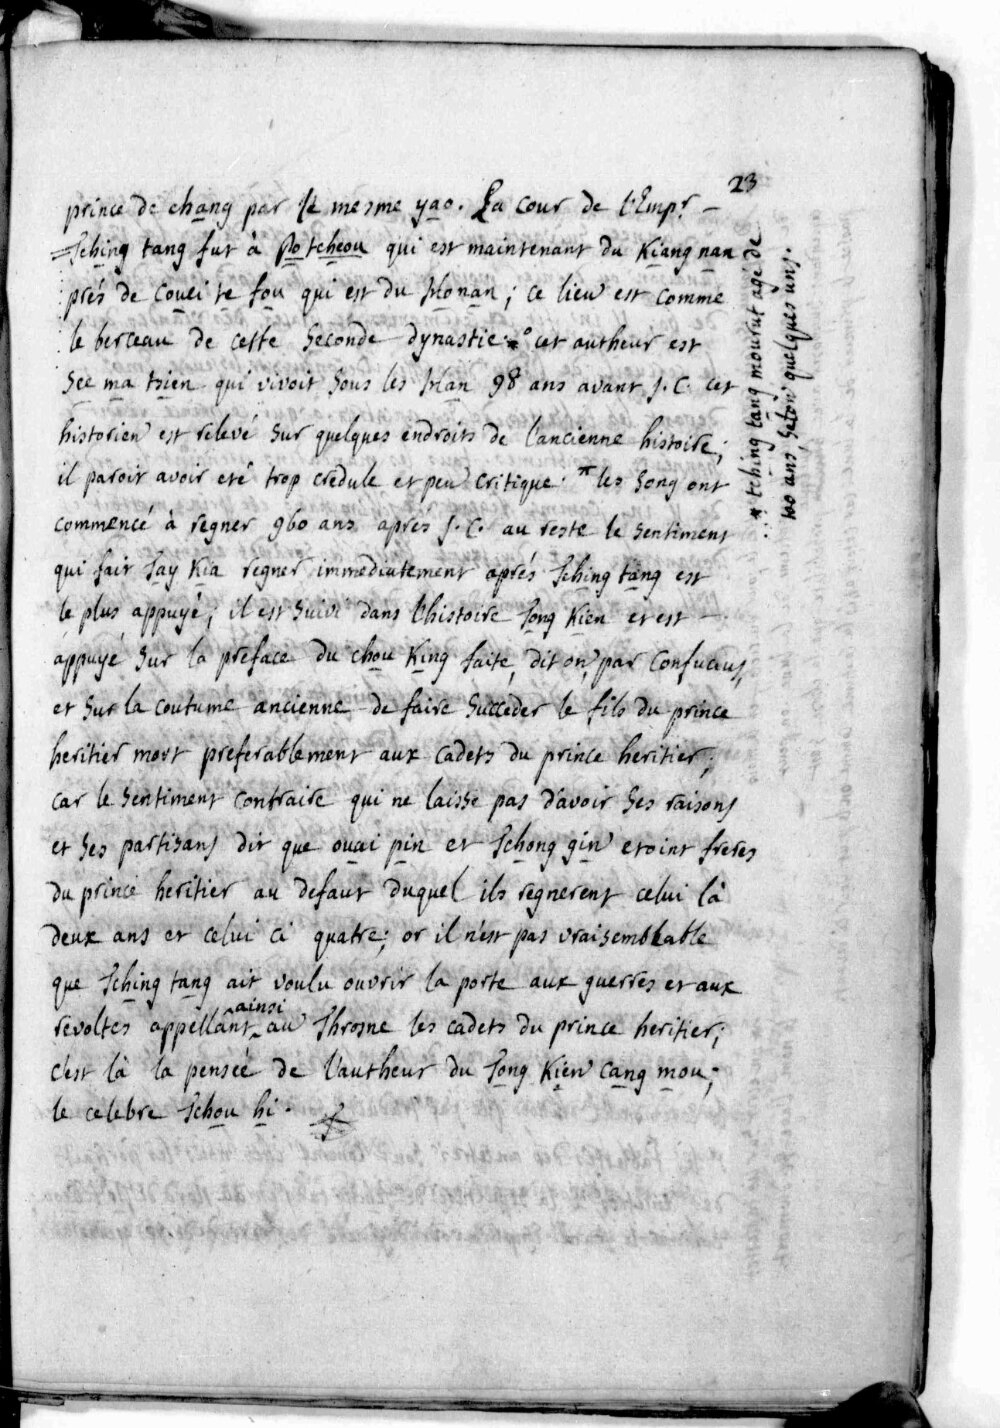 23
prince de chang par le mesme yao. La cour de l'Empr
Tching tang fut à Po tcheou qui est maintenant du Kiang nan
prés de Couei te fou qui est du Honan; ce lieu est comme
le berceau de cette seconde dynastie. ° cet autheur est
See ma tsien qui vivoit sous les Han 98 ans avant J. C. cet
historien est relevé sur quelques endroits de l'ancienne histoire;
il paroit avoir eté trop credule et peu critique. les Song ont
commencé à regner 960 ans aprés J. C. au reste le sentiment
qui fait Tay Kia regner immediatement aprés Tching tang est
le plus appuyé; il est suivi dans l'histoire Tong Kien et est
appuyé sur la preface du chou King faite, dit on, par Confucius,
et sur la coutume ancienne de faire succeder le fils du prince
heritier mort preferablement aux cadets du prince heritier;
car le sentiment contraire qui ne laisse pas d'avoir ses raisons
et ses partisans dit que ouai pin et Tchong gin etoint freres
du prince heritier au defaut duquel ils regnerent celui là
deux ans et celui ci quatre; or il n'est pas vraisemblable
que Tching tang ait voulu ouvrir la porte aux guerres et aux
revoltes appellant ainsi au Throsne les cadets du prince heritier;
c'est là la pensée de l'autheur du Tong Kien cang mou;
le celebre Tchou hi.
* tching tang mourut agé de
100 ans, selon quelques uns.